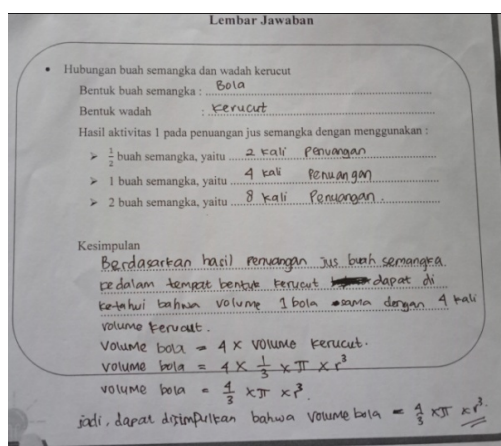 Lembar Jawaban
• Hubungan buah semangka dan wadah kerucut
Bentuk buah semangka : Bola
Bentuk wadah : kerucut
Hasil aktivitas 1 pada penuangan jus semangka dengan menggunakan :
➤ 1/2 buah semangka, yaitu 2 kali penuangan
➤ 1 buah semangka, yaitu 4 kali Penuangan
➤ 2 buah semangka, yaitu 8 kali Penuangan.
Kesimpulan
Berdasarkan hasil penuangan jus buah semangka
kedalam tempat bentuk kerucut dapat di
ketahui bahwa volume 1 bola sama dengan 4 kali
volume kerucut.
Volume bola = 4 x volume kerucut.
Volume bola = 4 x 1/3 x π x r³
volume bola = 4/3 x π x r³.
jadi, dapat disimpulkan bahwa volume bola = 4/3 x π x r³.